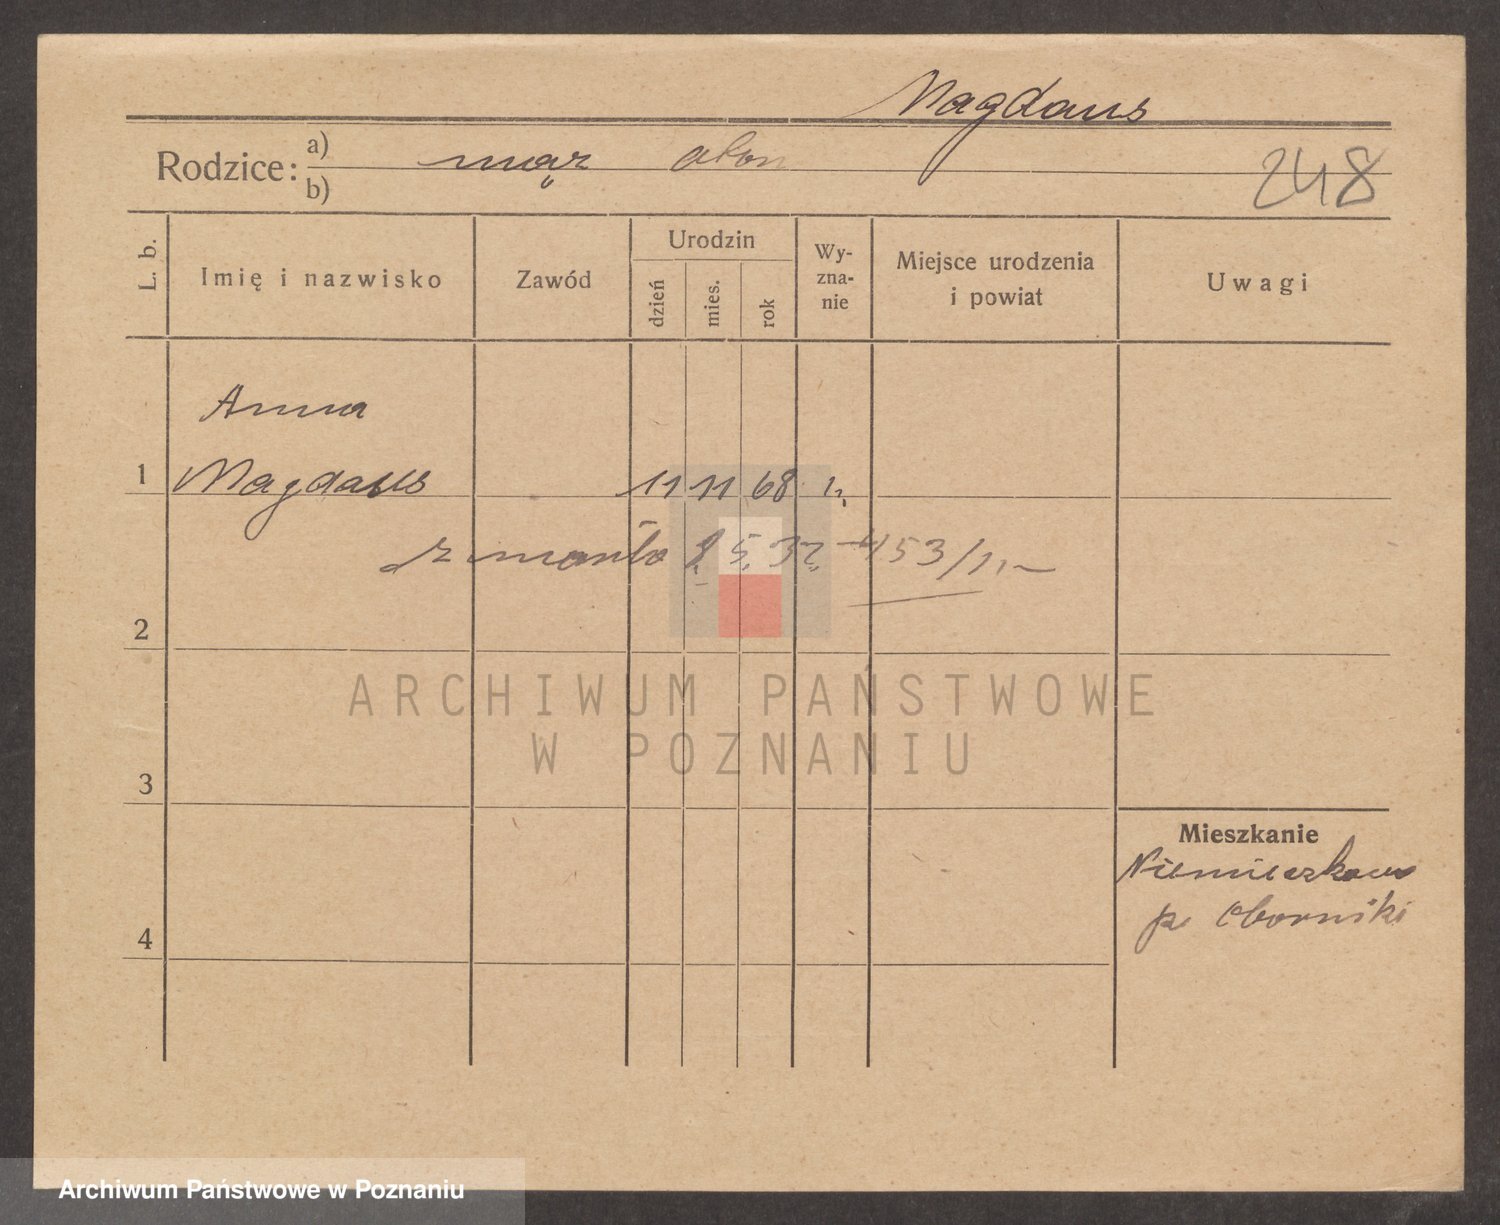 Magdans
Rodzice: a) mąż
b)
248
L. b.
Imię i nazwisko
Zawód
Urodzin
dzień
mies.
rok
Wy-
zna-
nie
Miejsce urodzenia
i powiat
Uwagi
Anna
1 Magdans 11 11 68
zmarła 2. 5. 32. 453/1.
2
ARCHIWUM PAŃSTWOWE
W POZNANIU
3
Mieszkanie
Niemieczkowo
p. Oborniki
4
Archiwum Państwowe w Poznaniu